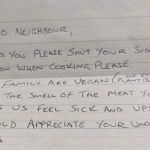 O NEIGHBOUR,
D YOU PLEASE SHUT YOUR SIDE
OW WHEN COOKING PLEASE.
FAMILY ARE VEGAN (PLANT
THE SMELL OF THE MEAT YO
S US FEEL SICK AND UPS
LD APPRECIATE YOUR UND